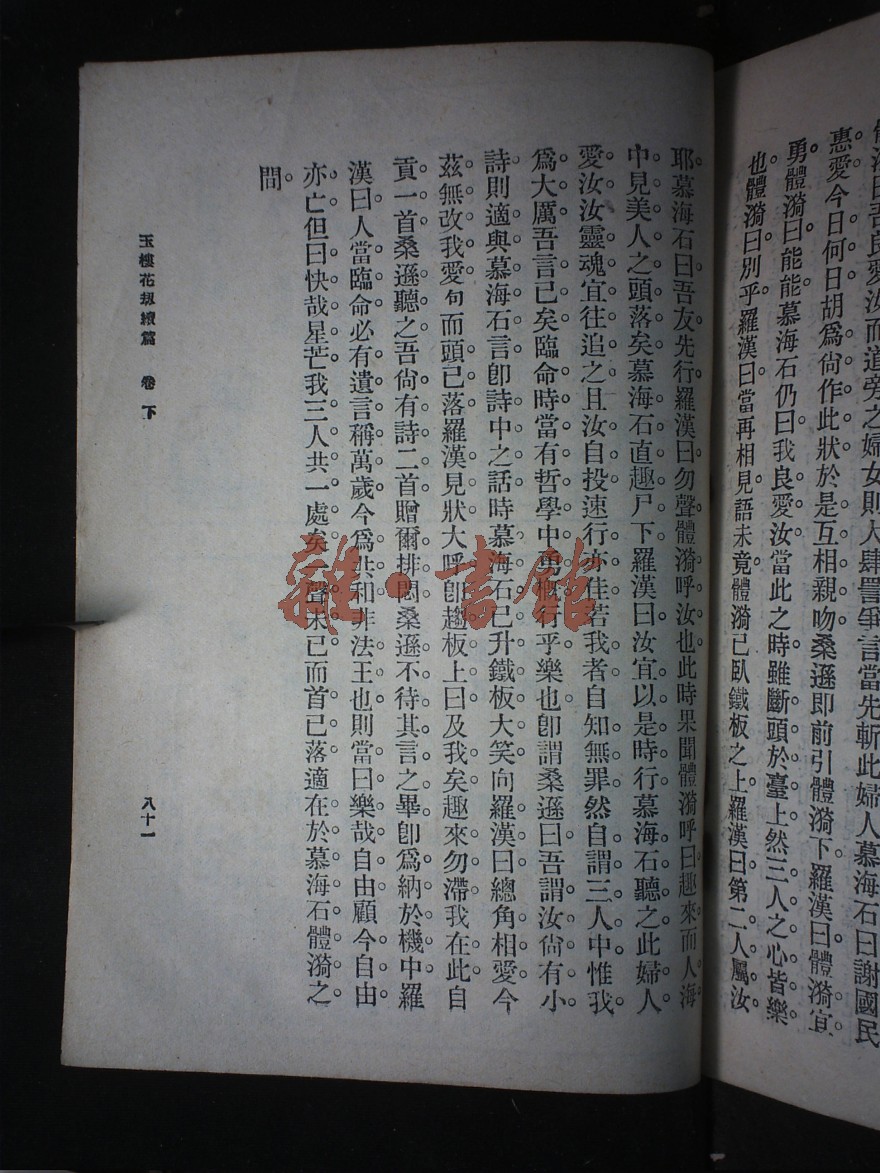 體漪曰吾良愛汝而道旁之婦女則大肆詈爭言當先斬此婦人慕海石曰謝國民
惠愛今日何日胡爲尙作此狀於是互相親吻桑遜即前引體漪下羅漢曰體漪宜
勇。體漪曰能能慕海石仍曰我良愛汝當此之時雖斷頭於臺上然三人之心皆樂
也體漪曰別乎羅漢曰當再相見語未竟體漪已臥鐵板之上羅漢曰第二人屬汝
耶慕海石曰吾友先行羅漢曰勿聲體漪呼汝也此時果聞體漪呼曰趣來而人海
中見美人之頭落矣慕海石直趣尸下羅漢曰汝宜以是時行慕海石聽之此婦人
愛汝汝靈魂宜往追之且汝自投速行亦佳若我者自知無罪然自謂三人中惟我
爲大厲吾言已矣臨命時當有哲學中勇概行乎樂也卽謂桑遜曰吾謂汝尙有小
詩則適與慕海石言卽詩中之話時慕海石已升鐵板大笑向羅漢曰總角相愛今
茲無改我愛句而頭已落羅漢見狀大呼卽趨板上曰及我矣趣來勿滯我在此自
貢一首桑遜聽之吾尙有詩二首贈爾排悶桑遜不待其言之畢卽爲納於機中羅
漢曰人當臨命必有遺言稱萬歲今爲共和非法王也則當曰樂哉自由顧今自由
亦亡但曰快哉星芒我三人共一處矣一聲未已而首已落適在於慕海石體漪之
間。
玉樓花刼續篇 卷下
八十一
雜·書館